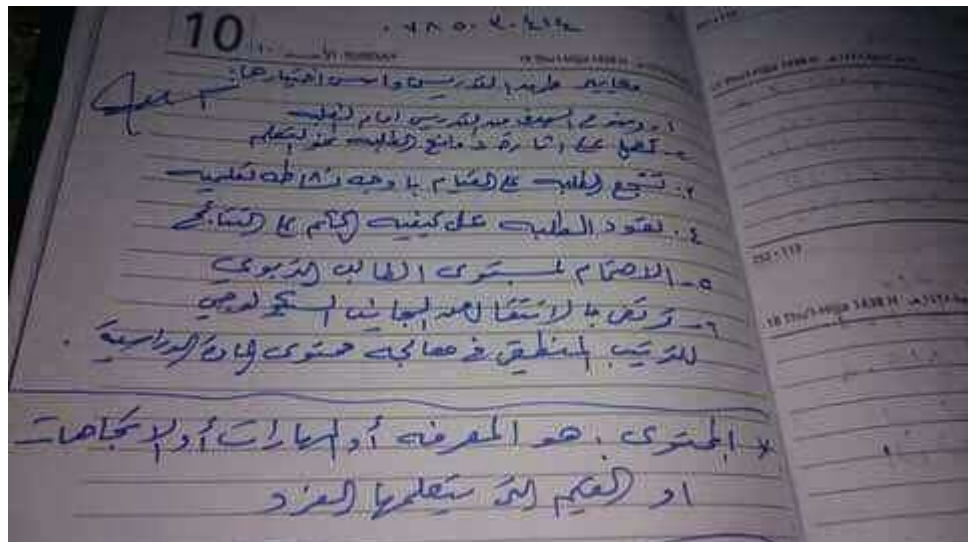 10
معايير طرق التدريس واسس اختيارها:
١- وضوح الهدف من التدريس امام الطلبه
٢- تعمل على اثارة دوافع الطلبه نحو التعلم
٣- تشجع الطلبه على القيام باوجه نشاطه تعليميه
٤- تعود الطلبه على كيفيه الحكم على النتائج
٥- الاهتمام لمستوى الطالب التربوي
٦- ترتقي بالانتقال من الجانب السيكولوجي
للترتيب المنطقي في معالجه محتوى المادة الدراسية.
* المحتوى: هو المعرفه أو المهارات أو الاتجاهات
او القيم التي يتعلمها الفرد
252 - 113
18 Thu'l-Hijja 1438 H